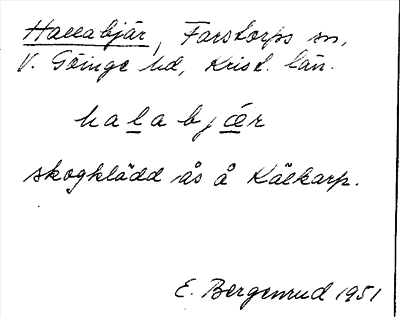 Hallabjär, Farstorps sn,
V. Göinge hd, Krist. län.
halabjær
skogklädd ås å Källkarp.
E. Bergenrud 1951